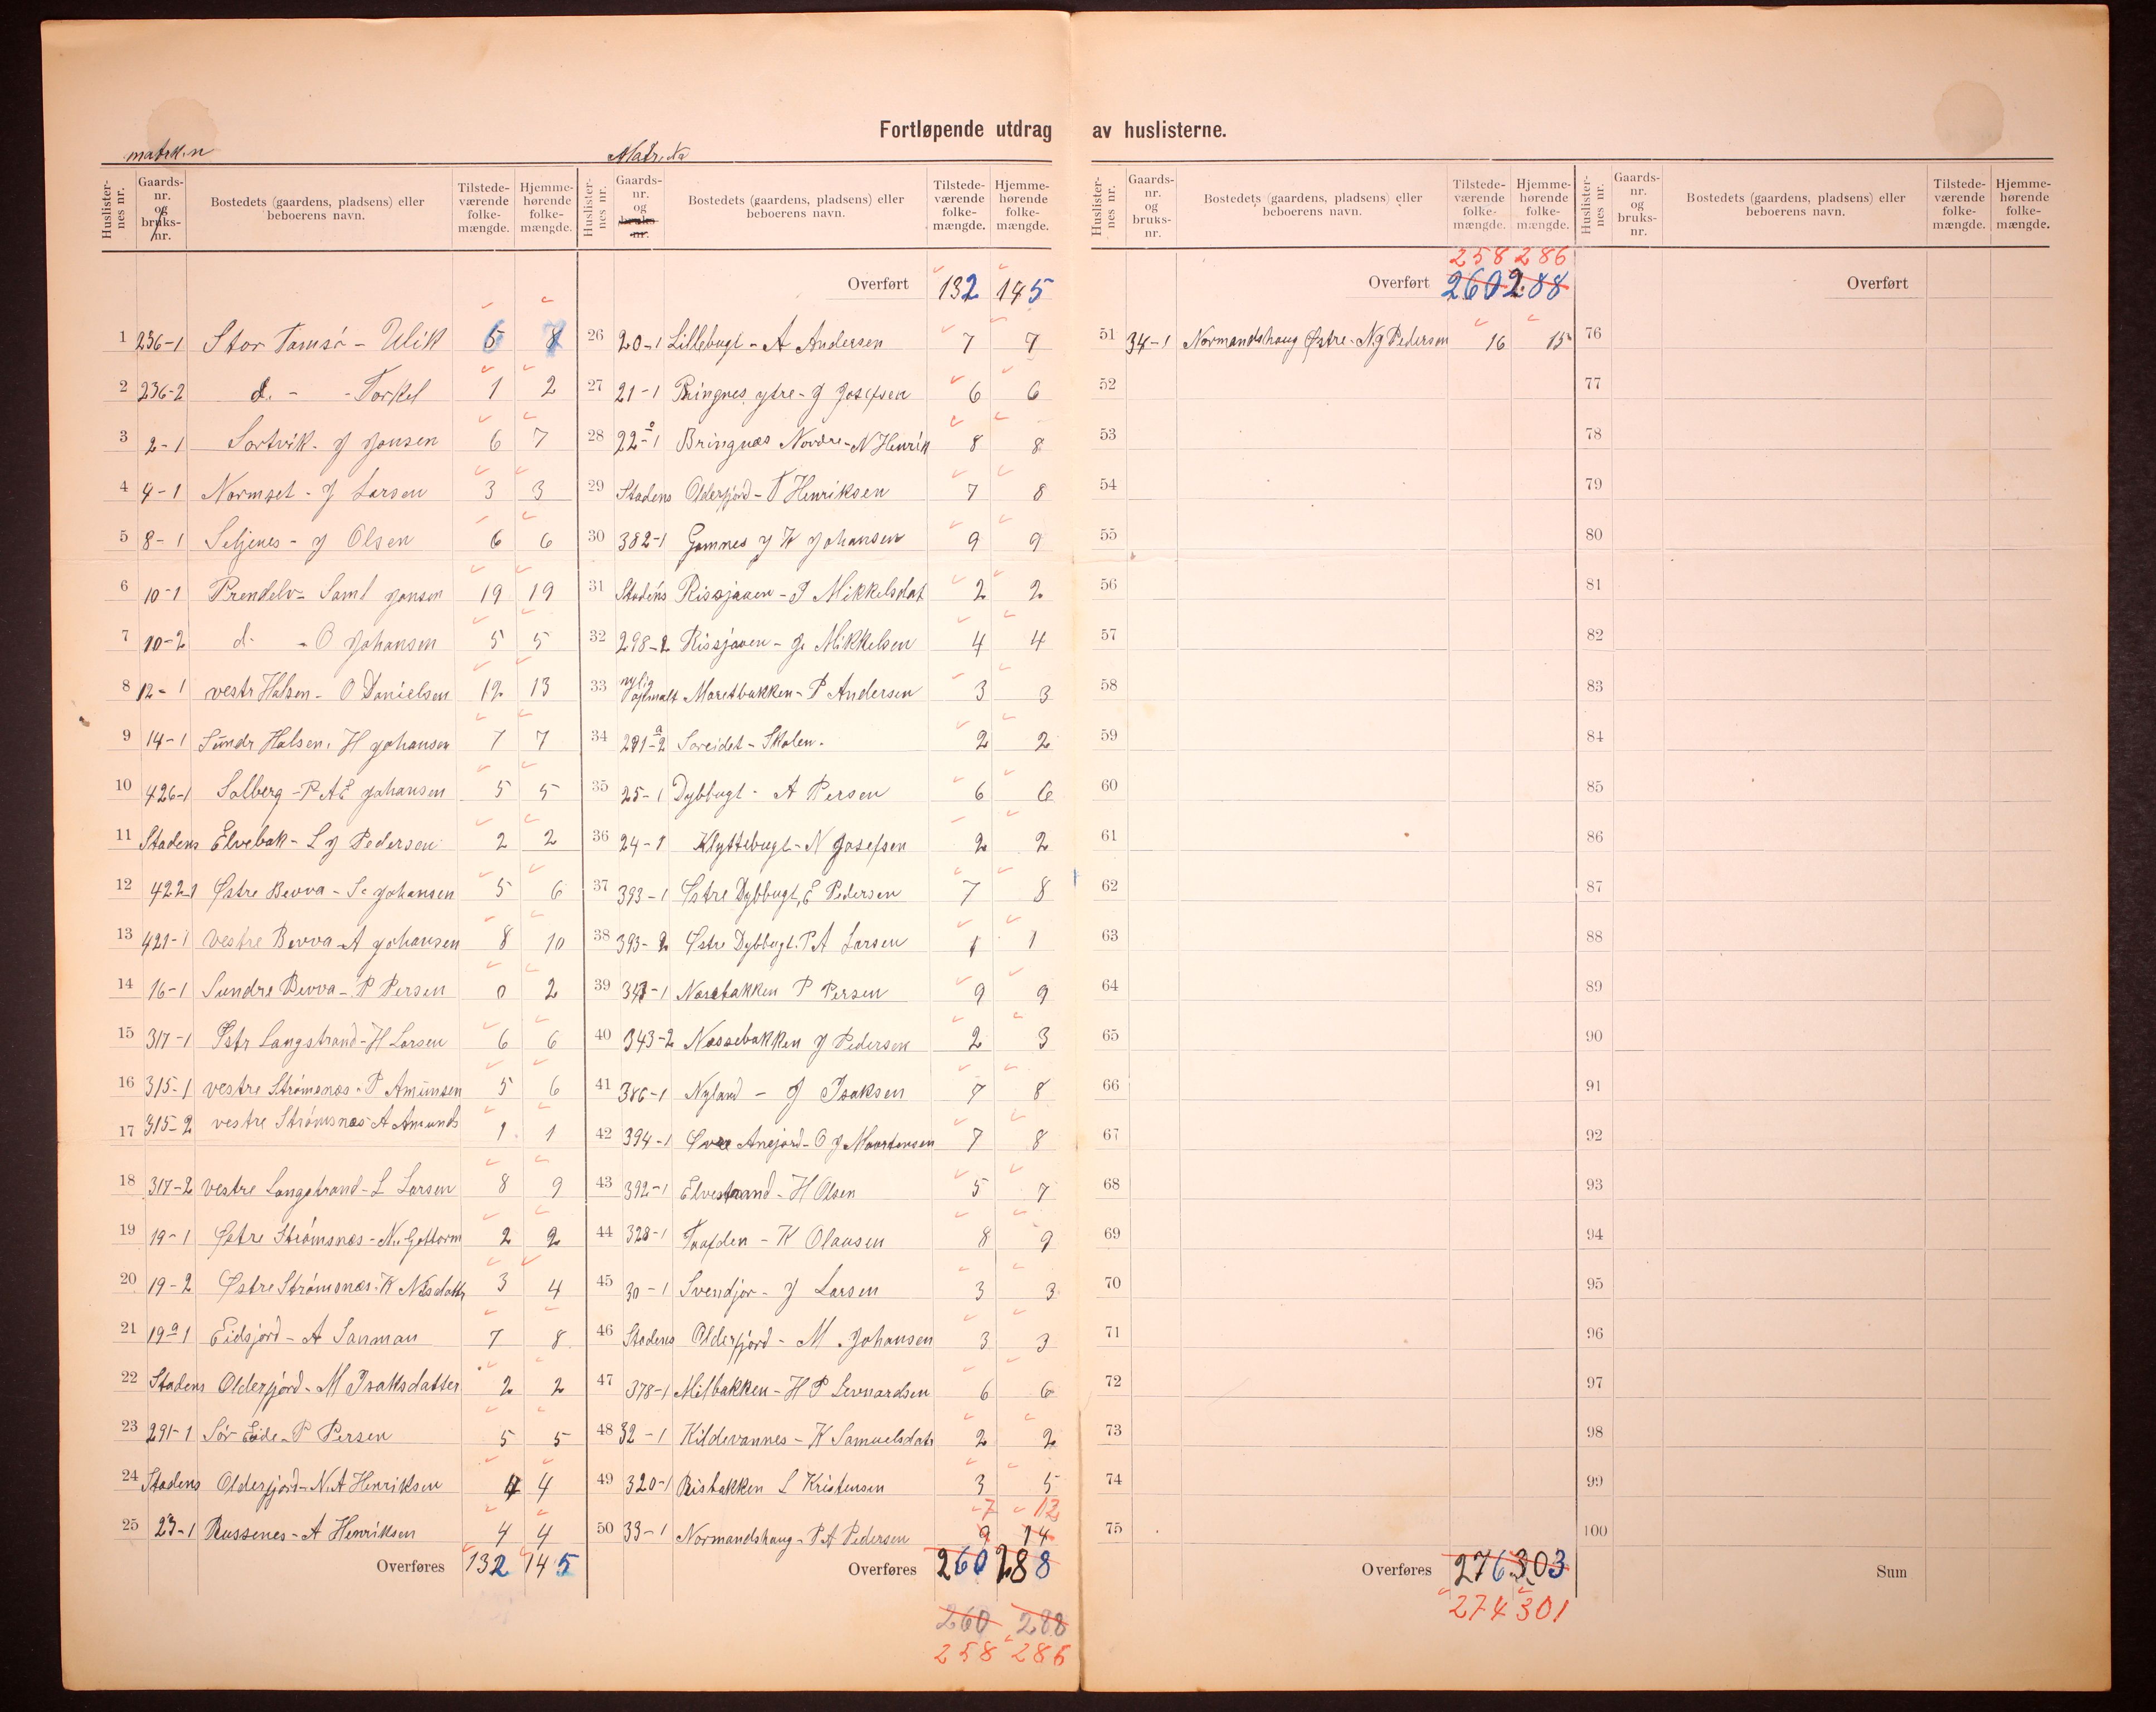 Fortløpende utdrag av huslisterne.
matrk.n
Matr. No
Huslisternes nr. Gaards-nr. og bruks-nr. Bostedets (gaardens, pladsens) eller beboerens navn. Tilstedeværende folkemængde. Hjemmehørende folkemængde.
1 236-1 Stor Tamsö - Ulik 6 8
2 236-2 d. - - Torkel 1 2
3 2-1 Sortvik - J Jonsen 6 7
4 4-1 Normset - J Larsen 3 3
5 8-1 Seljenes - J Olsen 6 6
6 10-1 Brendelv - Saml Jonsen 19 19
7 10-2 d. - O Johansen 5 5
8 12-1 vestr Halsen - O Danielsen 12 13
9 14-1 Sundr Halsen. H Johansen 7 7
10 426-1 Solberg - P A E Johansen 5 5
11 Stadens Elvebak - L J Pedersen 2 2
12 422-1 Østre Bevva - S. Johansen 5 6
13 421-1 vestre Bevva - A Johansen 8 10
14 16-1 Sundre Bevva - P Persen 0 2
15 317-1 Østr Langstrand - H Larsen 6 6
16 315-1 vestre Strömsnæs - P Amunsen 5 6
17 315-2 vestre Strömsnæs - A Amunds 1 1
18 317-2 vestre Langstrand - L Larsen 8 9
19 19-1 Østre Strömsnæs - N. Gottorm 2 2
20 19-2 Østre Strömsnæs. K Nilsdattr 3 4
21 19a1 Eidsjord - A Sanman 7 8
22 Stadens Olderfjord - M Isaksdatter 2 2
23 291-1 Sör Eide - P Persen 5 5
24 Stadens Olderfjord - N. A Henriksen 4 4
25 23-1 Russenes - A Henriksen 4 4
Overføres 132 145
Huslisternes nr. Gaards-nr. og bruks-nr. Bostedets (gaardens, pladsens) eller beboerens navn. Tilstedeværende folkemængde. Hjemmehørende folkemængde.
Overført 132 145
26 20-1 Lillebugt - A Andersen 7 7
27 21-1 Bringnes ytre - J Josefsen 6 6
28 22-1 Bringnæs Nordre - N Henrik 8 8
29 Stadens Olderfjord - P Henriksen 7 8
30 382-1 Gamnes J K Johansen 9 9
31 Stadens Rissjaaen - I Mikkelsdat 2 2
32 298-2 Rissjaaen - J. Mikkelsen 4 4
33 nylig opmaalt Moretbakken - P Andersen 3 3
34 291a-2 Soreidet - Skolen. 2 2
35 25-1 Dybbugt - A Persen 6 6
36 24-1 Klyttebugt - N Josefsen 2 2
37 393-1 Østre Dybbugt, E Pedersen 7 8
38 393-2 Østre Dybbugt. P A Larsen 1 1
39 343-1 Næssebakken P Persen 9 9
40 343-2 Næssebakken J Pedersen 2 3
41 386-1 Nyland - J Isaksen 7 8
42 394-1 Øvre Anejord - O J Moortensen 7 8
43 392-1 Elvestrand - H Olsen 5 7
44 328-1 Toofden - K Olausen 8 9
45 30-1 Svendjor - J Larsen 3 3
46 Stadens Olderfjord - M. Johansen 3 3
47 378-1 Milbakken - H P Levnardsen 6 6
48 32-1 Kildevannes - K Samuelsdatr 2 2
49 320-1 Risbakken L Kristensen 3 5
7 13
50 33-1 Normandshaug - P A Pedersen 9 14
Overføres 260 288
260 288
258 286
Huslisternes nr. Gaards-nr. og bruks-nr. Bostedets (gaardens, pladsens) eller beboerens navn. Tilstedeværende folkemængde. Hjemmehørende folkemængde.
258 286
Overført 260 288
51 34-1 Normandshaug Østre - N J Pedersen 16 15
52
53
54
55
56
57
58
59
60
61
62
63
64
65
66
67
68
69
70
71
72
73
74
75
Overføres 276 303
274 301
Huslisternes nr. Gaards-nr. og bruks-nr. Bostedets (gaardens, pladsens) eller beboerens navn. Tilstedeværende folkemængde. Hjemmehørende folkemængde.
Overført
76
77
78
79
80
81
82
83
84
85
86
87
88
89
90
91
92
93
94
95
96
97
98
99
100
Sum